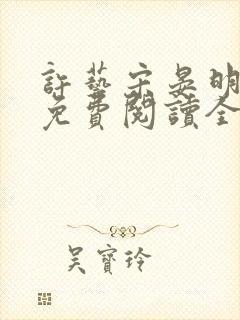 許藝宗晏明
免費閱讀全
吳寶玲